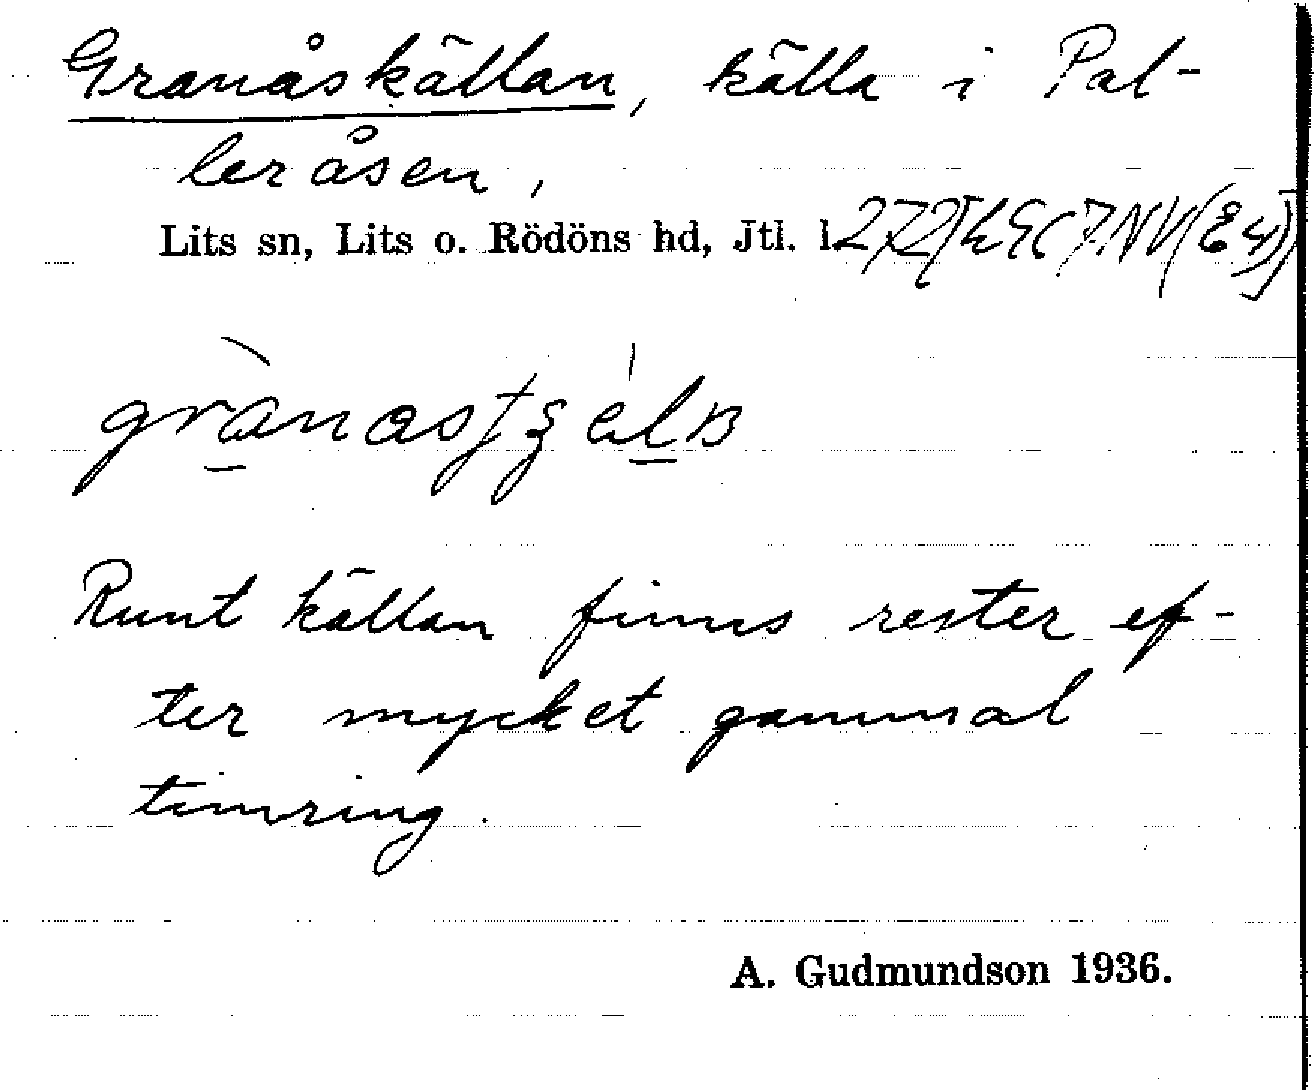 Granåskällan, källa i Pal-
leråsen,
Lits sn, Lits o. Rödöns hd, Jtl. l.
Runt källan finns rester ef-
ter mycket gammal
timring.
A. Gudmundson 1936.